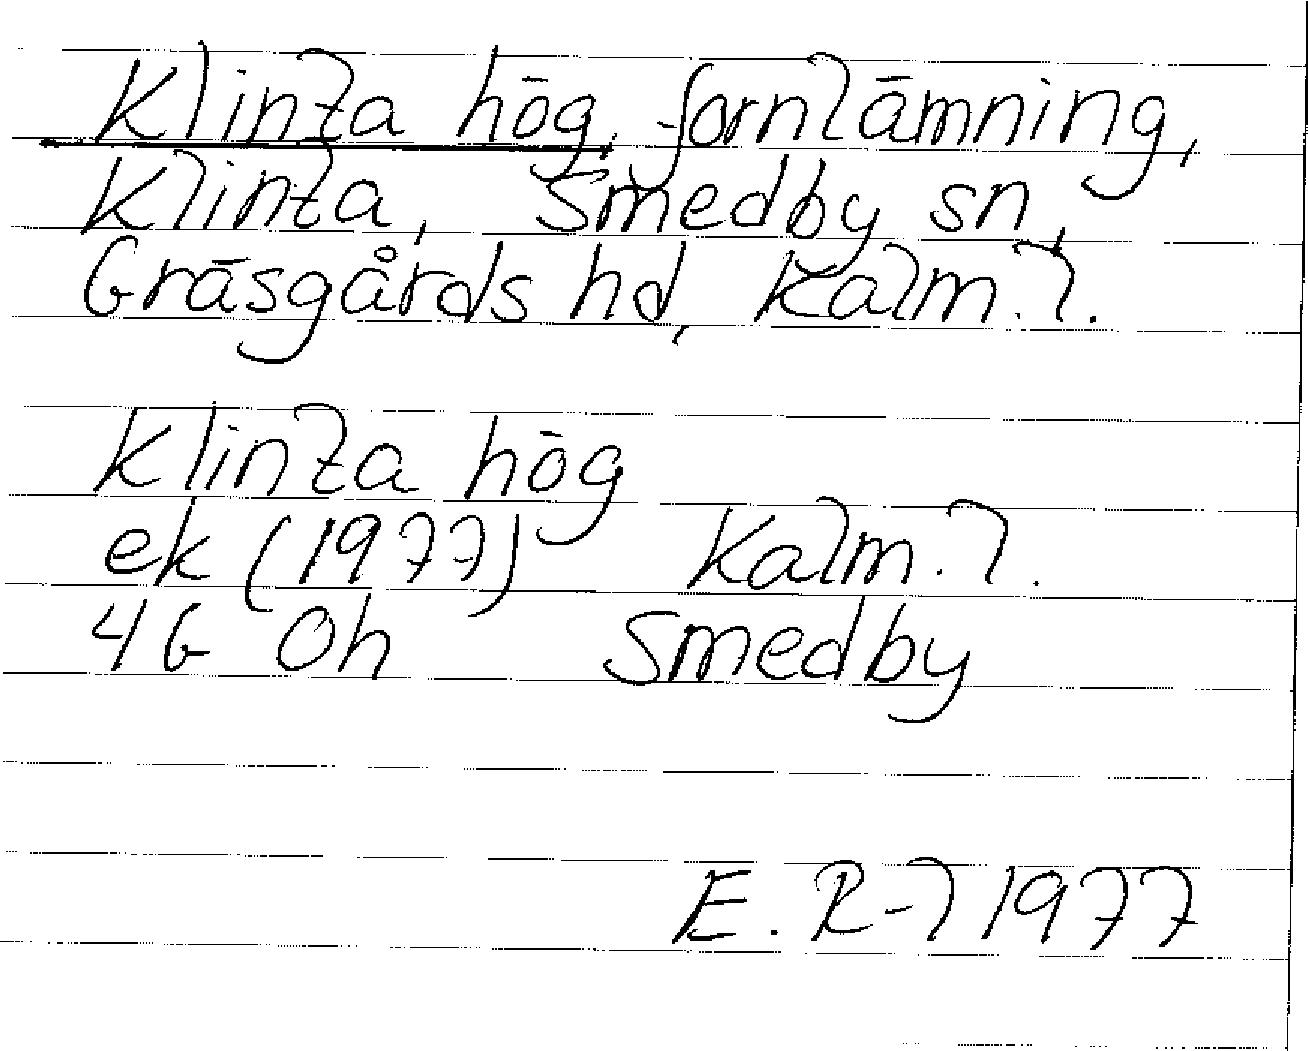 Klinta hög, fornlämning,
Klinta, Smedby sn,
Gräsgårds hd, Kalm. l.
Klinta hög
ek (1977) Kalm. l.
4G 0h Smedby
E. R-l 1977